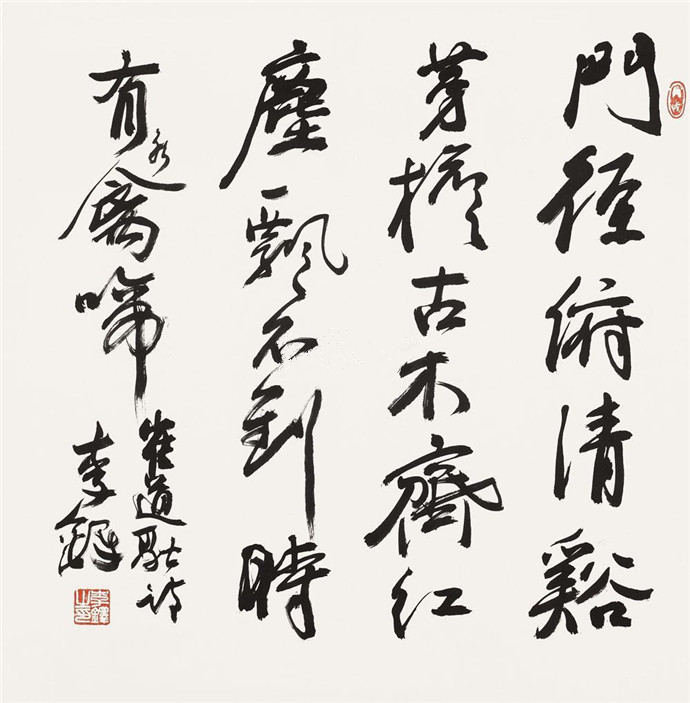 門徑俯清谿
茅檐古木齊紅
塵飄不到時
有水禽啼
崔道融詩
李鐸